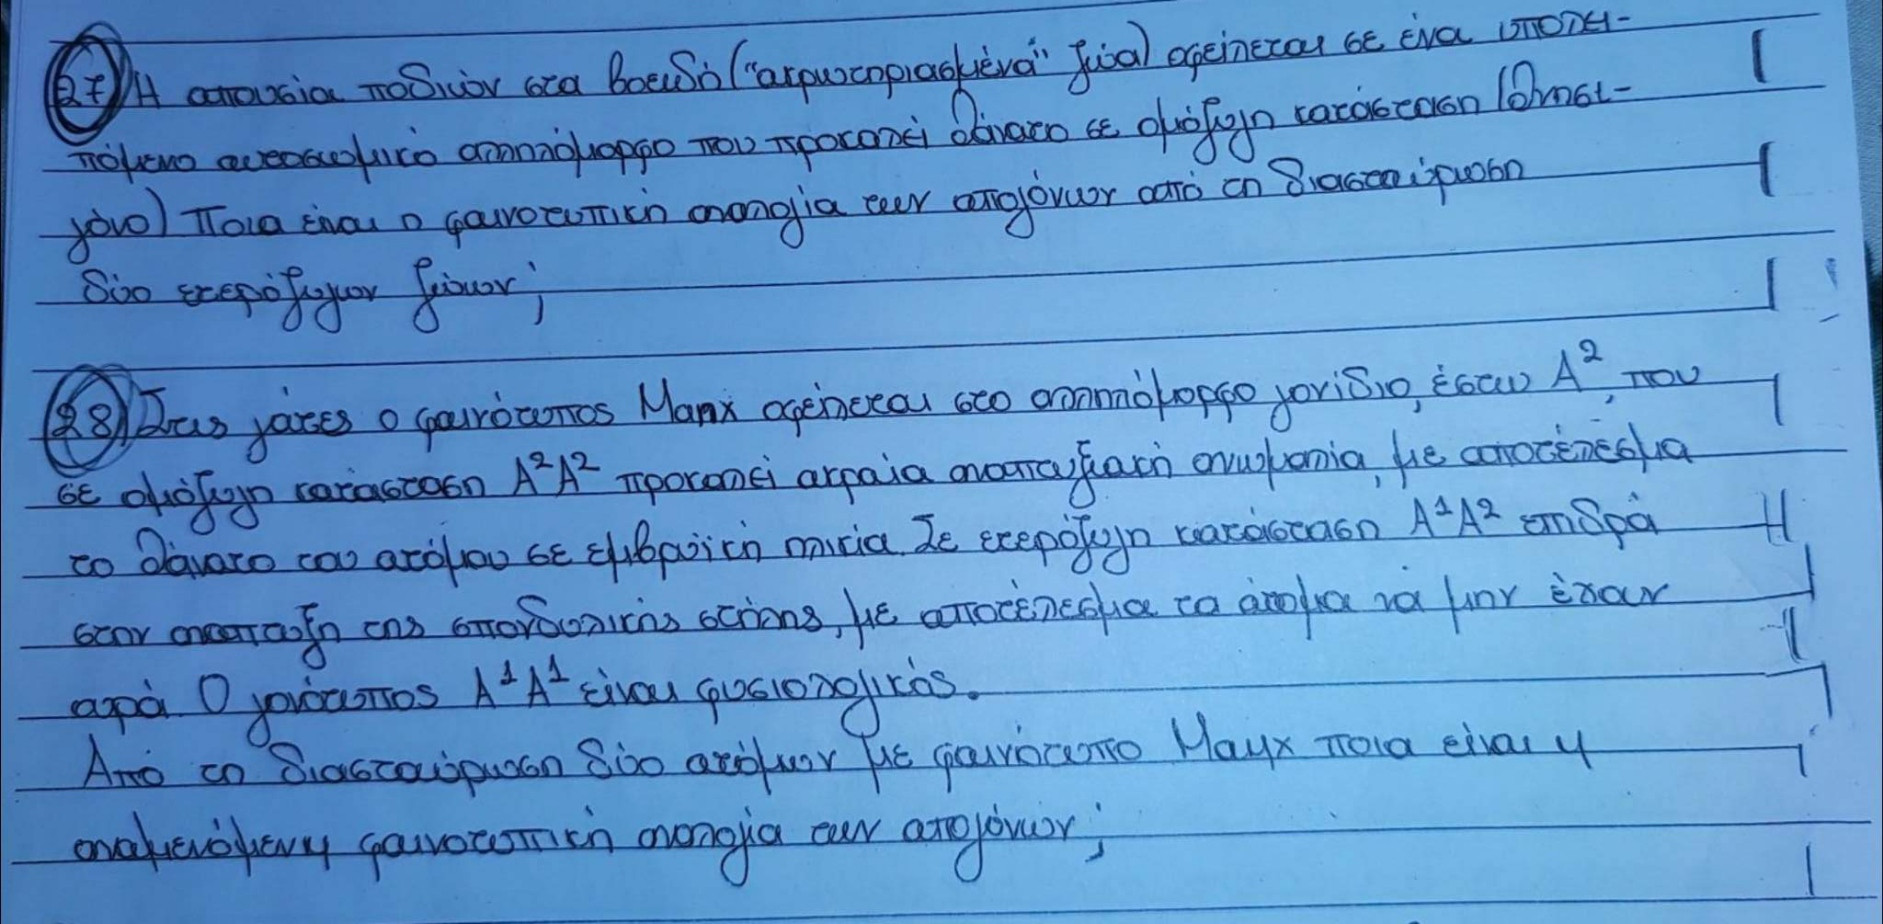 27) Η απουσία ποδιών στα βοειδή ("ακρωτηριασμένα" ζώα) οφείλεται σε ένα υπολει-
πόμενο αυτοσωμικό αλληλόμορφο που προκαλεί θάνατο σε ομόζυγη κατάσταση (θνησι-
γόνο) Ποια είναι η φαινοτυπική αναλογία των απογόνων από τη διασταύρωση
δύο ετερόζυγων ζώων;
28) Στις γάτες ο φαινότυπος Manx οφείλεται στο αλληλόμορφο γονίδιο, έστω A², που
σε ομόζυγη κατάσταση A²A² προκαλεί ακραία αναπτυξιακή ανωμαλία, με αποτέλεσμα
το θάνατο του ατόμου σε εμβρυϊκή ηλικία. Σε ετερόζυγη κατάσταση A¹A² επιδρά
στην ανάπτυξη της σπονδυλικής στήλης, με αποτέλεσμα τα άτομα να μην έχουν
ουρά Ο γονότυπος A¹A¹ είναι φυσιολογικός.
Από τη διασταύρωση δύο ατόμων με φαινότυπο Μανχ ποια είναι η
αναμενόμενη φαινοτυπική αναλογία των απογόνων;